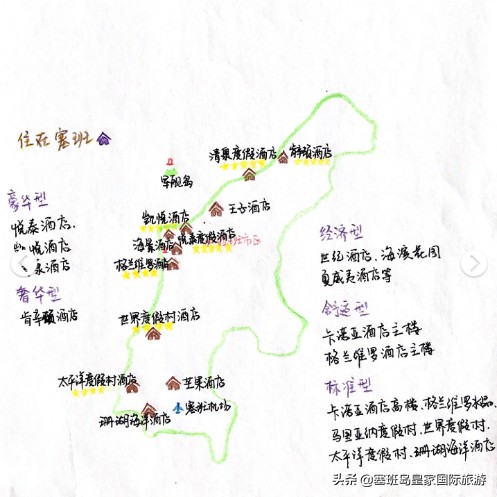 住在塞班
清泉度假酒店
肯辛顿酒店
军舰岛
豪华型
悦泰酒店、
凯悦酒店
泉酒店
奢华型
肯辛顿酒店
凯悦酒店
王子酒店
海景酒店
悦泰度假酒店
市区
格兰维罗酒店
世界度假村酒店
太平洋度假村酒店
芒果酒店
塞班机场
珊瑚海洋酒店
经济型
世纪酒店、海滨花园
夏威夷酒店等
舒适型
卡诺亚酒店主楼
格兰维罗酒店主楼
标准型
卡诺亚酒店高楼、格兰维罗水晶、
马里亚纳度假村、世界度假村、
太平洋度假村、珊瑚海洋酒店
头条 @塞班岛皇家国际旅游